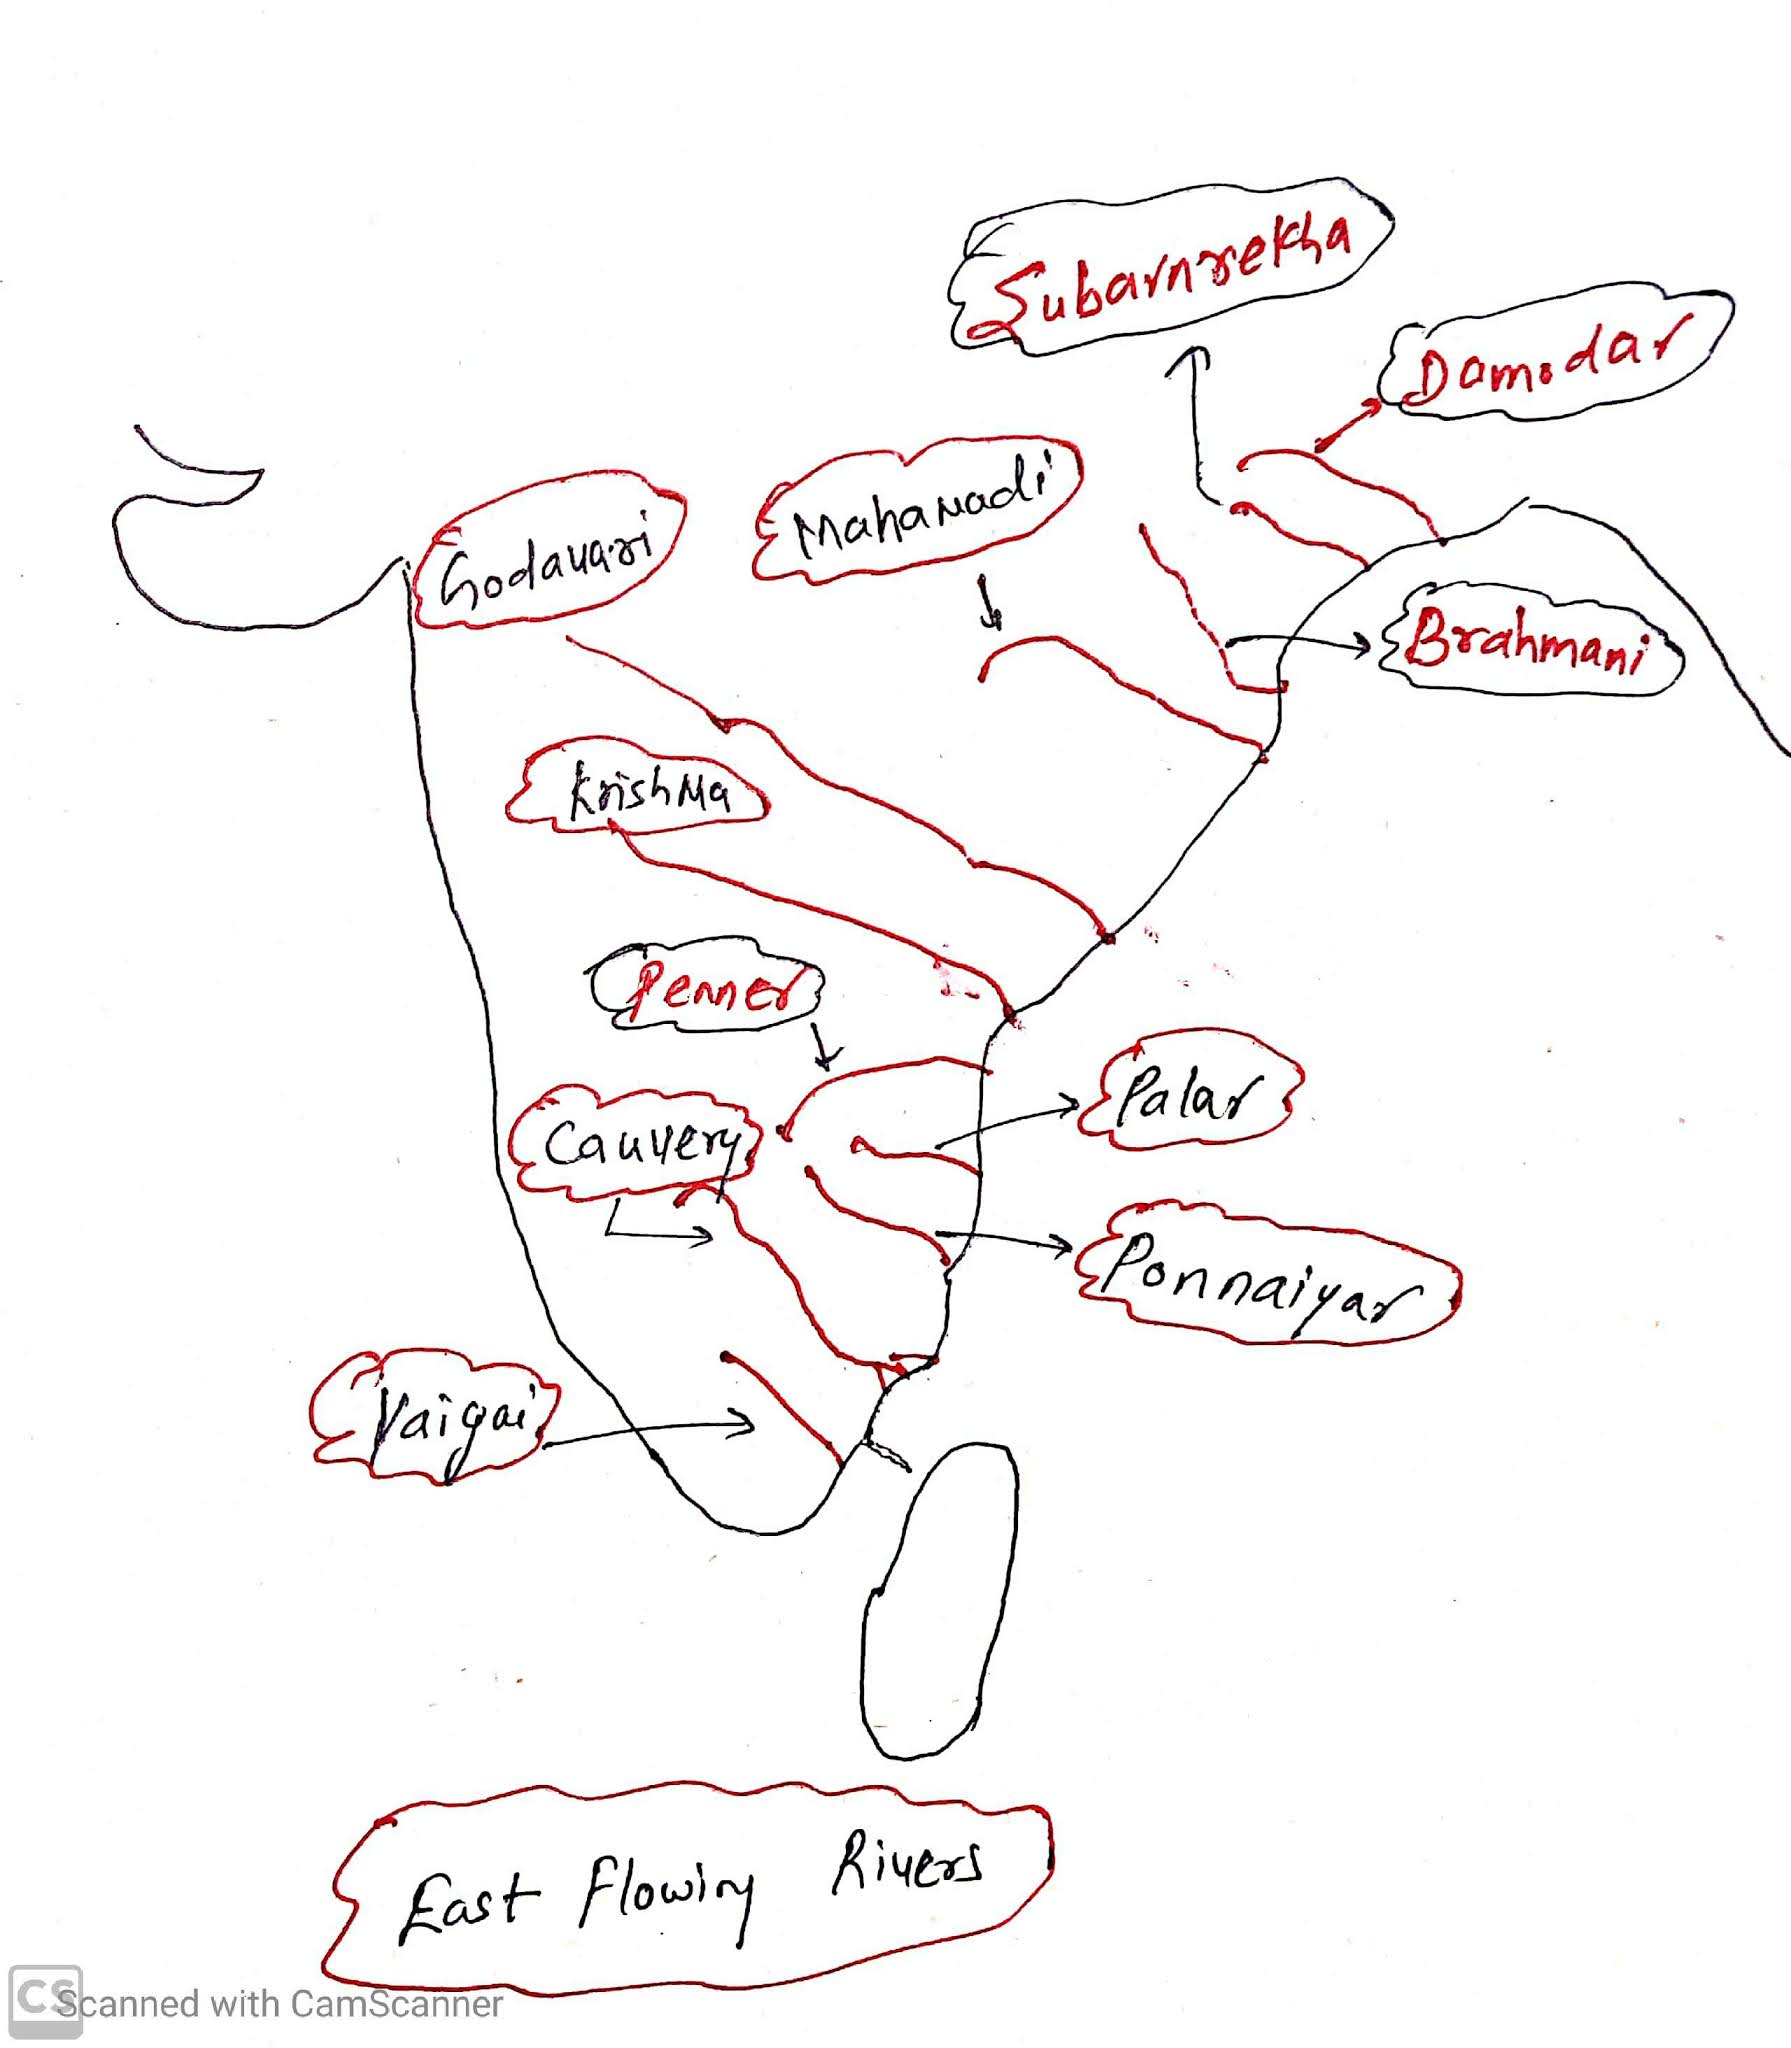 Subarnrekha
Damodar
Mahanadi
Godavari
Brahmani
Krishna
Penner
Palar
Cauvery
Ponnaiyar
Vaigai
East Flowing Rivers
CS
Scanned with CamScanner